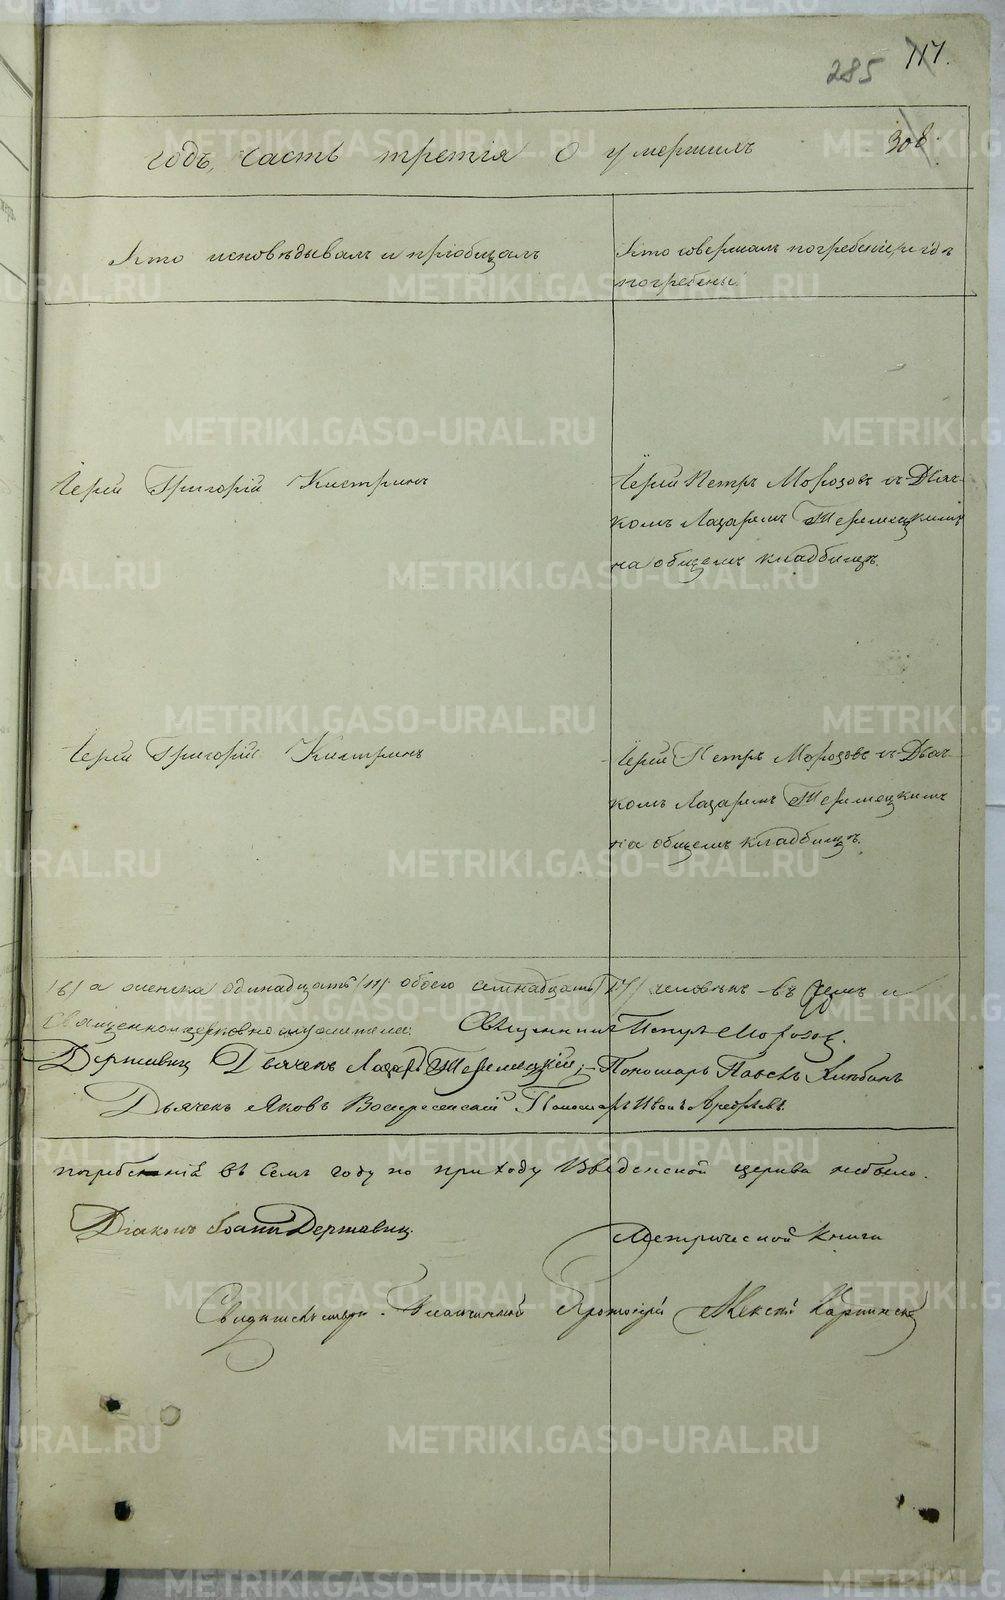 285 117.
годъ, часть третія о умершихъ 308.
Кто исповѣдывалъ и пріобщалъ
Кто совершалъ погребеніе, и гдѣ
погребены.
Іерей Григорій Кистринъ
Іерей Петръ Морозовъ съ Дьяч-
комъ Лазаремъ
на общемъ кладбищѣ.
Іерей Григорій Кистринъ
Іерей Петръ Морозовъ съ Дьяч-
комъ Лазаремъ
на общемъ кладбищѣ.
/6/ а женска одинадцать /11/ обоего семнадцать /17/ человѣкъ въ чемъ и
Священноцерковнослужители: Священникъ Петръ Морозовъ.
Державинъ Дьячекъ Лазарь Пономарь Павелъ
Дьячекъ Яковъ Воскресенскій Пономарь Иванъ
погребенія въ семъ году по приходу Введенской церкви небыло.
Діаконъ Іоаннъ Державинъ.
Метрической книги
Свидѣтельствовалъ Благочинный Протоіерей Алексѣй Карпинскій
METRIKI.GASO-URAL.RU